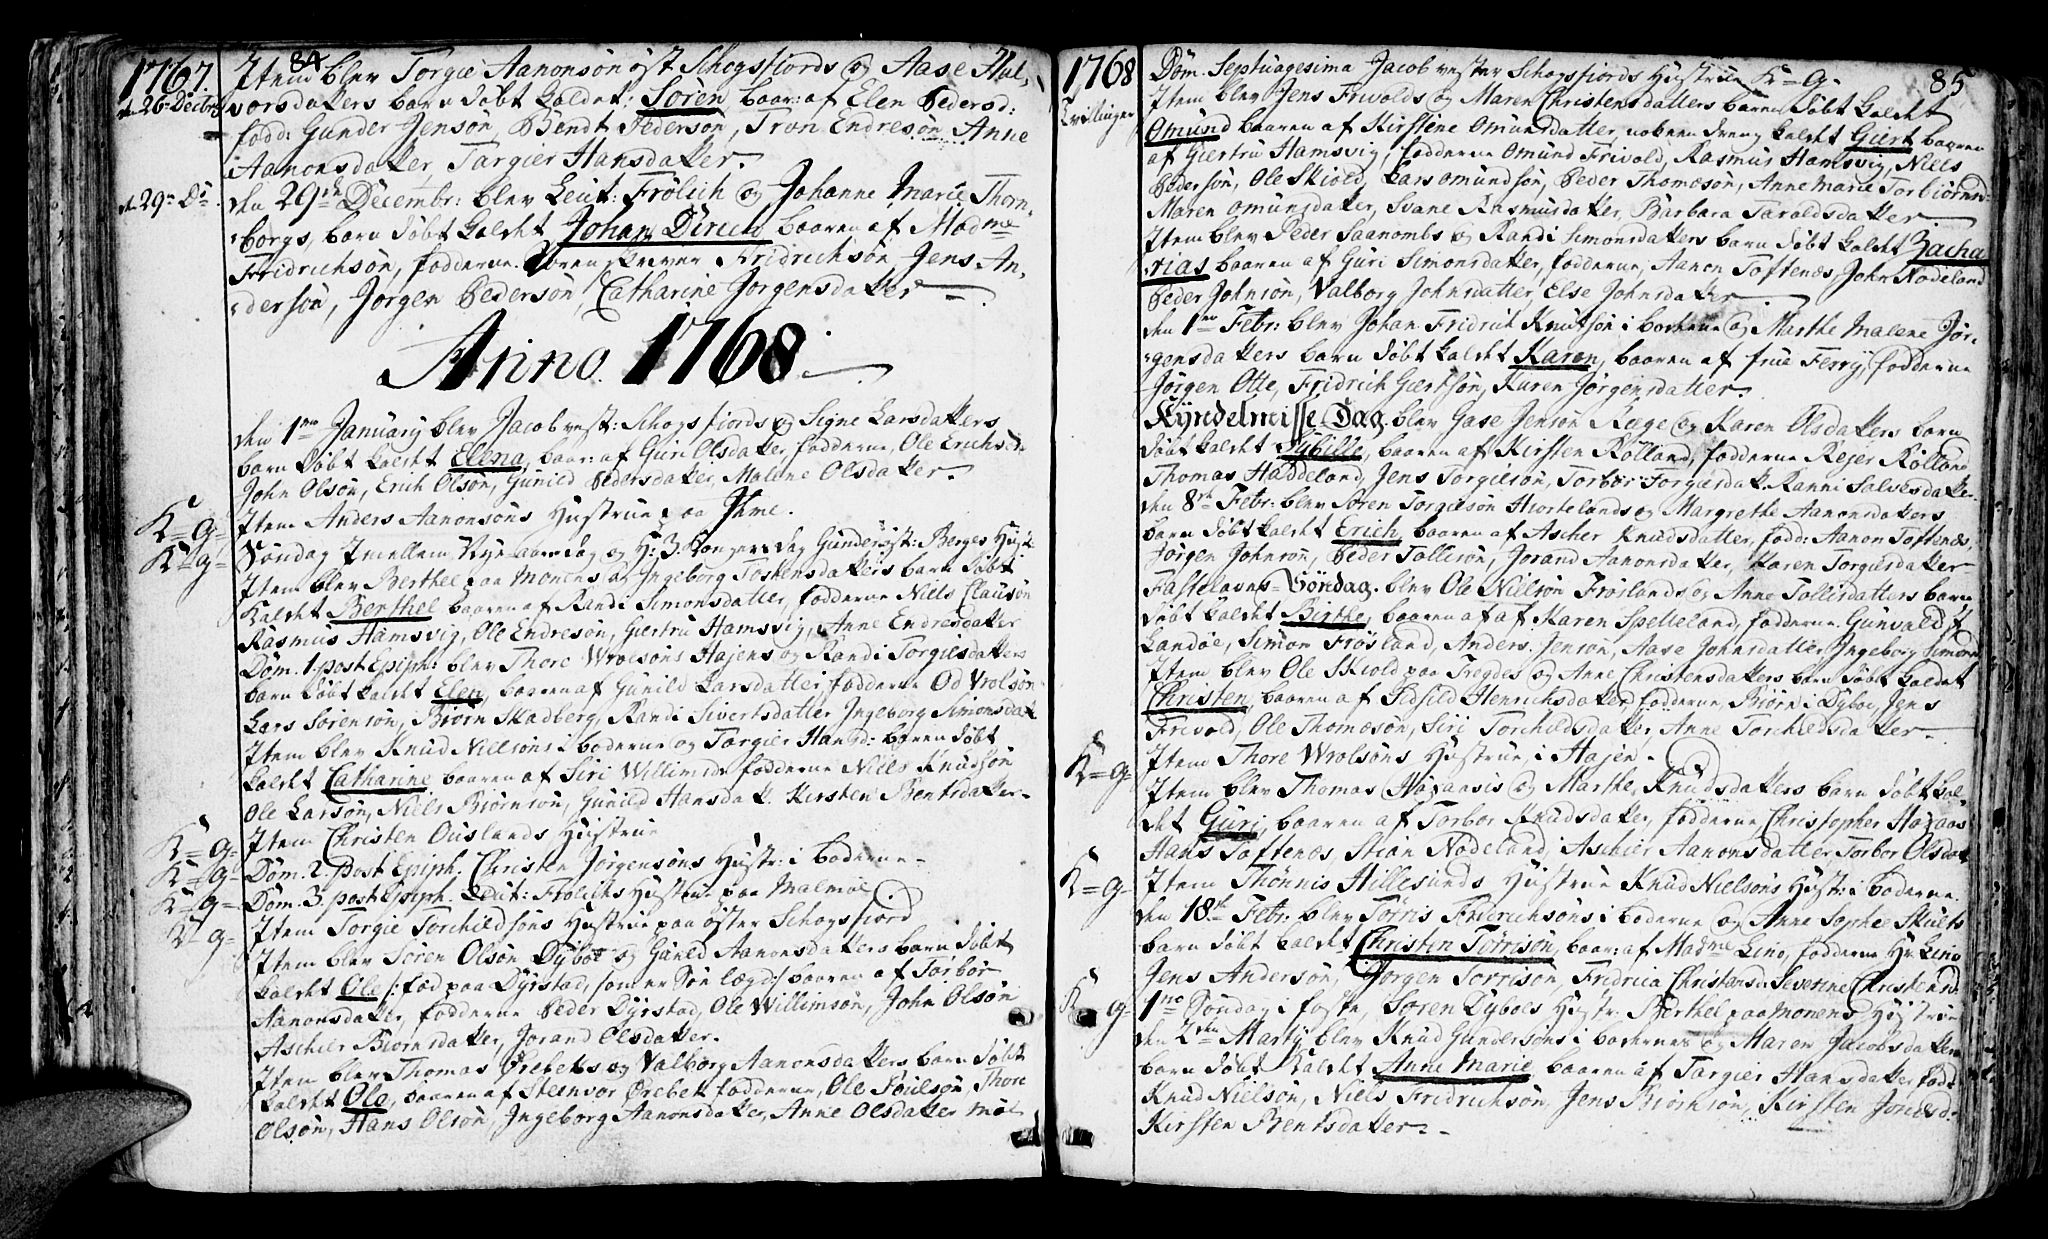 1767.
84
Item blev Torgie Aanonsøn øst Schogsfiords og Aase Hal-
d. 26de Decbr
vorsdatters barn døbt kaldet: Søren baar: af Elen Pedersd:
fodd: Gunder Jensøn, Bendt Pedersøn, Tron Endresøn Anne
Aanonsdatter, Targier Hansdatter.
d. 29de Do.
den 29de Decembr: blev Leut: Frølich og Johanne Marie Thorn-
borgs, barn døbt kaldet Johan Dirich baaren af Madme
Fridrichsøn, fodderne. Sorenskriver Fridrichsøn Jens An-
dersøn, Jørgen Pedersøn, Catharine Jørgensdatter
Anno. 1768.
den 1mo January blev Jacob vest: Schogsfiords og Signe Larsdatters
barn døbt kaldet Elena, baar: af Guri Olsdatter, fodderne, Ole Erichs:
John Olsøn, Erich Olsøn, Gunild Pedersdatter, Malene Olsdatter.
K=g= Item Anders Aanonsøns Hustrue paa Ihme.
K=g= Søndag Imellem Nye aars dag og H: 3 Konger dag Gunder øst: Berges Hust
Item blev Berthel paa Monens og Ingeborg Tostensdatters barn døbt
Kaldet Berthel baaren af Randi Simonsdatter, fodderne Niels Clausøn
Rasmus Hamsvig, Ole Endresøn, Giertru Hamsvig, Anne Endresdatter
Dom. 1 post Epiph: blev Thore Wrolsøns Hajens og Randi Torgiesdatters
barn døbt kaldet Elen, baaren af Gunild Larsdatter, fodderne Od Vrolsøn
Lars Sørensøn, Biørn Skadberg, Randi Sivertsdatter Ingeborg Simonsdat
Item blev Knud Nielsøns i boderne og Targier Hansd: barn døbt
kaldet Catharine, baaren af Siri Willimsd: fodderne Niels Knudsøn
Ole Larsøn, Niels Biørnsøn, Gunild Hansdat. Kirsten Bentsdatter.
K=g= Item Christen Ouslands Hustrue
K=g= Dom. 2. post Epiph. Christen Jørgensøns Hustr: i boderne
K=g= Dom. 3. post Epiph. Leut: Frølichs Hustrue paa Malmøe
K=g= Item Torgie Torchildsøns Hustrue paa øster Schogsfiord
Item blev Søren Olsøn Dyboe og Gunild Aanonsdatters barn døbt
kaldet Ole /: fød paa Dyrstad, som er Søn lægd:/ baaren af Torbor
Aanonsdatter, fodderne Peder Dyrstad, Ole Willimsøn, John Olsøn
Aschier Biørnsdatter, Jorand Olsdatter.
Item blev Thomas Ørebeks og Valborg Aanonsdatters barn døbt
kaldet Ole, baaren af Steenvor Ørebek fodderne, Ole Poulsøn, Thore
Olsøn, Hans Olsøn, Ingeborg Aanonsdatter, Anne Olsdatter
1768
85
Dom. Septuagesima Jacob vester Schogsfiords Hustrue K=g.
Item blev Jens Frivolds og Maren Christensdatters barn døbt kaldet
Tvillinger
Omund baaren af Kirstine Omunsdatter, nok en dreng kaldet Giert baaren
af Giertru Hamsvig, fodderne Omund Frivold, Rasmus Hamsvig, Niels
Pedersøn, Ole Skiold, Lars Omundsøn, Peder Thomesøn, Anne Marie Torbiørnsd:
Maren Omunsdatter, Svane Rasmusdatter, Barbara Taraldsdatter
Item blev Peder Saanombs og Randi Simonsdatters barn døbt kaldet Zacha-
rias baaren af Guri Simonsdatter, fodderne, Aanon Toftenæs, John Nodeland
Peder Johnsøn, Valborg Johnsdatter, Else Johnsdatter
den 1mo Febr: blev Johan Fridrich Knutsøn i boderne og Marthe Malene Jør-
gensdatters barn døbt kaldet Karen, baaren af frue Ferry, fodderne
Jørgen Otte, Fridrich Giertsøn, Karen Jørgensdatter.
Kyndelmisse Dag. blev Gase Jensøn Røge og Karen Olsdatters barn
døbt kaldet Sybille, baaren af Kirsten Rølland, fodderne Rejer Rølland
Thomas Haddeland, Jens Torgilsøn, Torbor Torgersdat. Ranni Salvesdatter
den 8de Febr: blev Søren Torgiesøn Hiortelands og Margrethe Aanonsdatters
barn døbt kaldet Erich, baaren af Ascher Knudsdatter, fodd: Aanon Toftenæs,
Jørgen Johnsøn, Peder Tollisøn, Jorand Aanonsdatter, Karen Torgiesdatter
Fastelavns Søndag. blev Ole Nielsøn Frøslands og Anne Tollisdatters barn
døbt kaldet Birthe, baaren af af Karen Spetteland, fodderne. Gunvald
Landøe, Simon Frøsland, Anders Jensøn, Aase Johnsdatter Ingeborg Simons
Item blev Ole Skiold paa Tregdes og Anne Christensdatters barn døbt kaldet
Christen, baaren af Sidsild Henrichsdatter, fodderne, Biørn i Dyboe, Jens
Frivold, Ole Thomæsøn, Siri Torchildsdatter, Anne Torchildsdatter
K=g= Item Thore Wrolsøns Hustrue i Hajen.
Item blev Thomas Høyaasis og Marthe Knudsdatters barn døbt kal-
det Guri, baaren af Torbor Knudsdatter, fodderne Christopher Høyaas
Hans Toftenæs, Stian Nodeland, Aschier Aanonsdatter Torbor Olsdat
K=g= Item Thønnis Hillesunds Hustrue Knud Nielsøns Hustr: i boderne
den 18de Febr: blev Tørris Fridrichsøns i boderne og Anne Sophie Skults
barn døbt kaldet Christen Tørrisøn, baar: af Madme Lino, fodderne Hr Lino
Jens Andersøn, Jørgen Torrisøn, Fridrica Christensd: Severine Christensd:
K=g= 1mo Søndag i faste, Søren Dyboes Hustr: Berthel paa Monens Hustrue
den 2den Marty blev Knud Gundersøns i boderne og Maren Jacobsdatters
barn døbt Kaldet Anne Marie, baaren af Targier Hansdatter fodd:
Knud Nielsøn, Niels Fridrichsøn, Jens Biørnsøn, Kirsten Jensd:
Kirsten Bentsdatter.